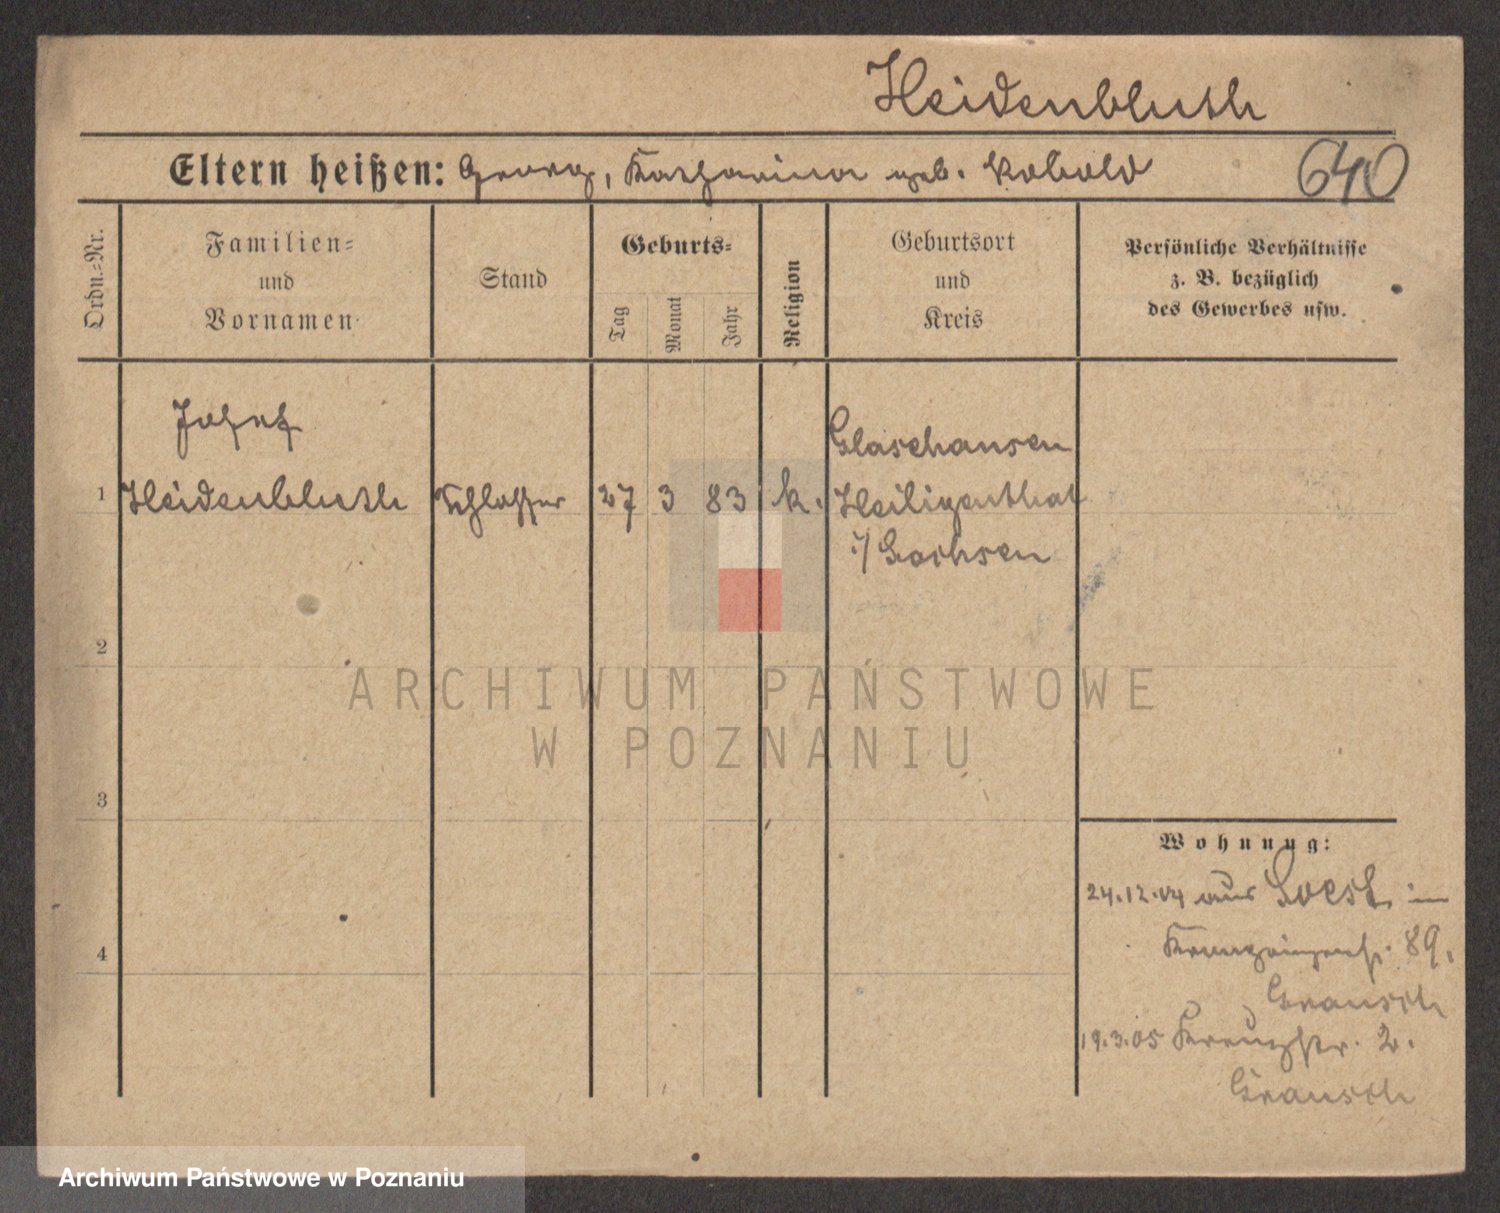 Heidenbluth
Eltern heißen: Georg, Katharina geb. Kobold
640
Ordn.-Nr.
Familien-
und
Vornamen
Stand
Geburts-
Tag
Monat
Jahr
Religion
Geburtsort
und
Kreis
Persönliche Verhältnisse
z. B. bezüglich
des Gewerbes usw.
Josef
1 Heidenbluth Schlosser 27 3 83 k.
Glasehausen
Heiligenthal
i/ Sachsen
2
3
4
Wohnung:
24.12.04 aus Soest, in
89.
Grausch
19.3.05 Kreuzstr. 2.
Grausch
ARCHIWUM PAŃSTWOWE
W POZNANIU
Archiwum Państwowe w Poznaniu